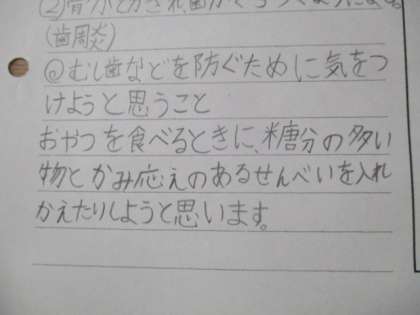 ②骨がとかされ、歯がぐらつくようになる。
(歯周炎)
◎むし歯などを防ぐために気をつ
けようと思うこと
おやつを食べるときに、糖分の多い
物とかみ応えのあるせんべいを入れ
かえたりしようと思います。